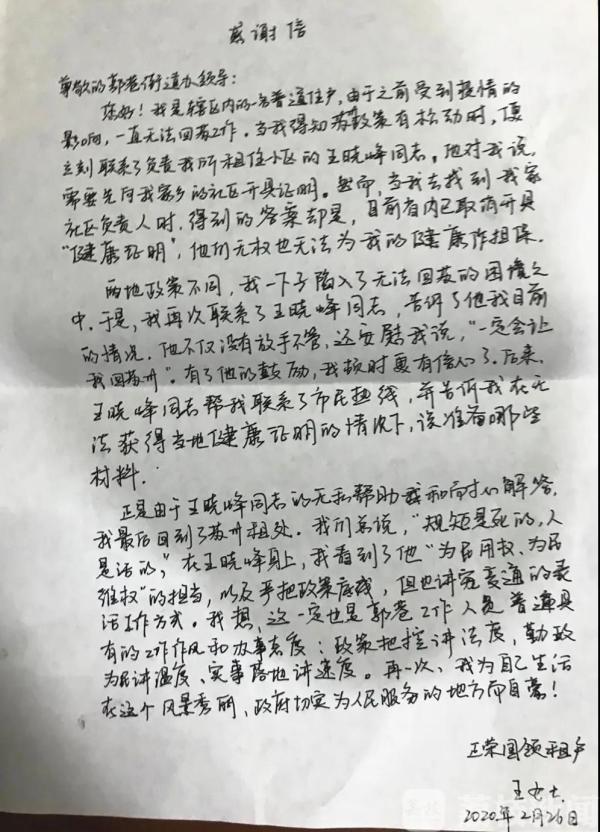 感谢信
尊敬的郭巷街道办领导：
您好！我是辖区内的一名普通住户，由于之前受到疫情的
影响，一直无法回苏工作。当我得知苏政策有松动时，便
立刻联系了负责我所租住小区的王晓峰同志。他对我说，
需要先向我家乡的社区开具证明。然而，当我去找到我家
社区负责人时，得到的答案却是，目前省内已取消开具
“健康证明”，他们无权也无法为我的健康作担保。
两地政策不同，我一下子陷入了无法回苏的困境之
中。于是，我再次联系了王晓峰同志，告诉了他我目前
的情况。他不仅没有放手不管，还安慰我说，“一定会让
我回苏州”。有了他的鼓励，我顿时更有信心了。后来，
王晓峰同志帮我联系了市民热线，并告诉我在无
法获得当地健康证明的情况下，该准备哪些
材料.
正是由于王晓峰同志的无私帮助和耐心解答，
我最后回到了苏州租处。我们常说，“规矩是死的，人
是活的，”在王晓峰身上，我看到了他“为民用权、为民
维权”的担当，以及手把政策底线，但也讲究变通的灵
活工作方式。我想，这一定也是郭巷工作人员普遍具
有的工作作风和办事态度：政策把控讲法度，勤政
为民讲温度、实事落地讲速度。再一次、我为自己生活
在这个风景秀丽，政府切实为人民服务的地方而自豪！
正荣国领租户
王女士
2020年2月26日